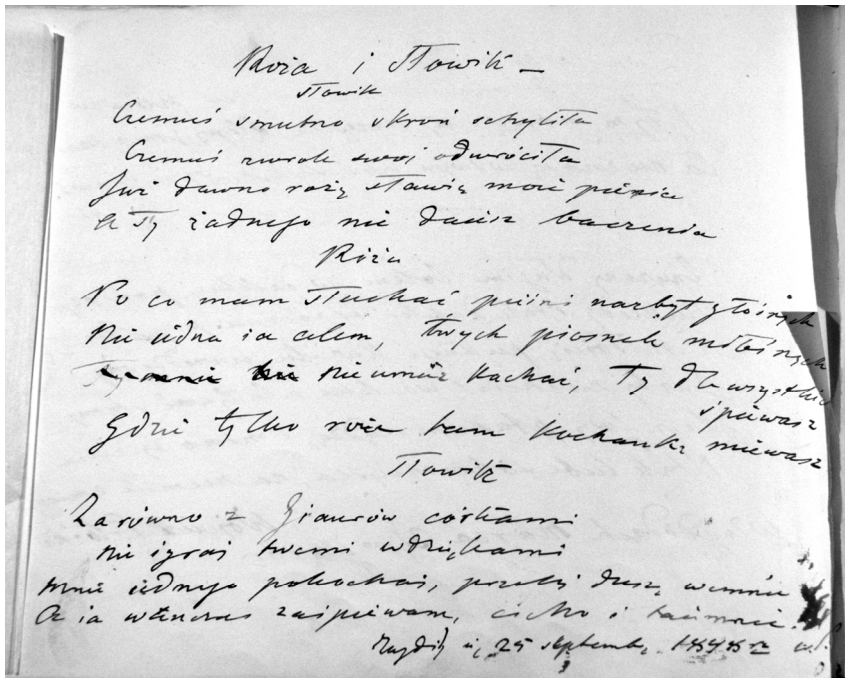 Róża i Słowik –
Słowik
Czemuś smutno skroń schyliła
Czemuś zwrok swoj odwróciła
Już dawno rożę sławią moie pienia
A Ty żadnego nie daiesz baczenia
Róża
Po co mam słuchać pieśni nazbyt głośnych
Nie iedna ia celem, twych piosnek miłosnych
nie umiesz kochać, Ty dla wszystkich
śpiewasz
Gdzie tylko roże tam kochankę miewasz
Słowik
Zarówno z Giaurów córkami
nie igraj twemi wdziękami
mnie iednego pokochaj, przelej duszę wemnie
A ia wtenczas zaśpiewam, cicho i taiemnie.
25 septemb.